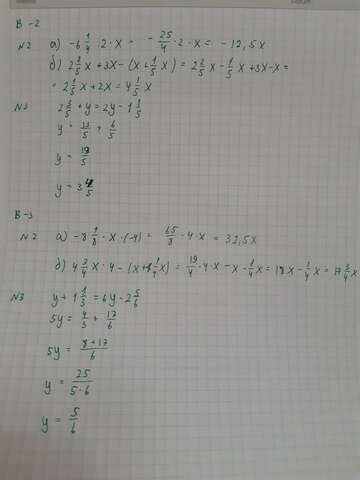 В-2
N2 а) -6 1/4 · 2 · x = - 25/4 · 2 · x = - 12,5x
б) 2 2/5 x + 3x - (x + 1/5 x) = 2 2/5 x - 1/5 x + 3x - x =
= 2 1/5 x + 2x = 4 1/5 x
N3 2 3/5 + y = 2y - 1 1/5
y = 13/5 + 6/5
y = 19/5
y = 3 4/5
В-3
N2 а) -8 1/8 · x · (-4) = 65/8 · 4 · x = 32,5x
б) 4 3/4 x · 4 - (x + 1/4 x) = 19/4 · 4 · x - x - 1/4 x = 18x - 1/4 x = 17 3/4 x
N3 y + 1 1/3 = 6y - 2 5/6
5y = 4/3 + 17/6
5y = 8+17/6
y = 25/5·6
y = 5/6